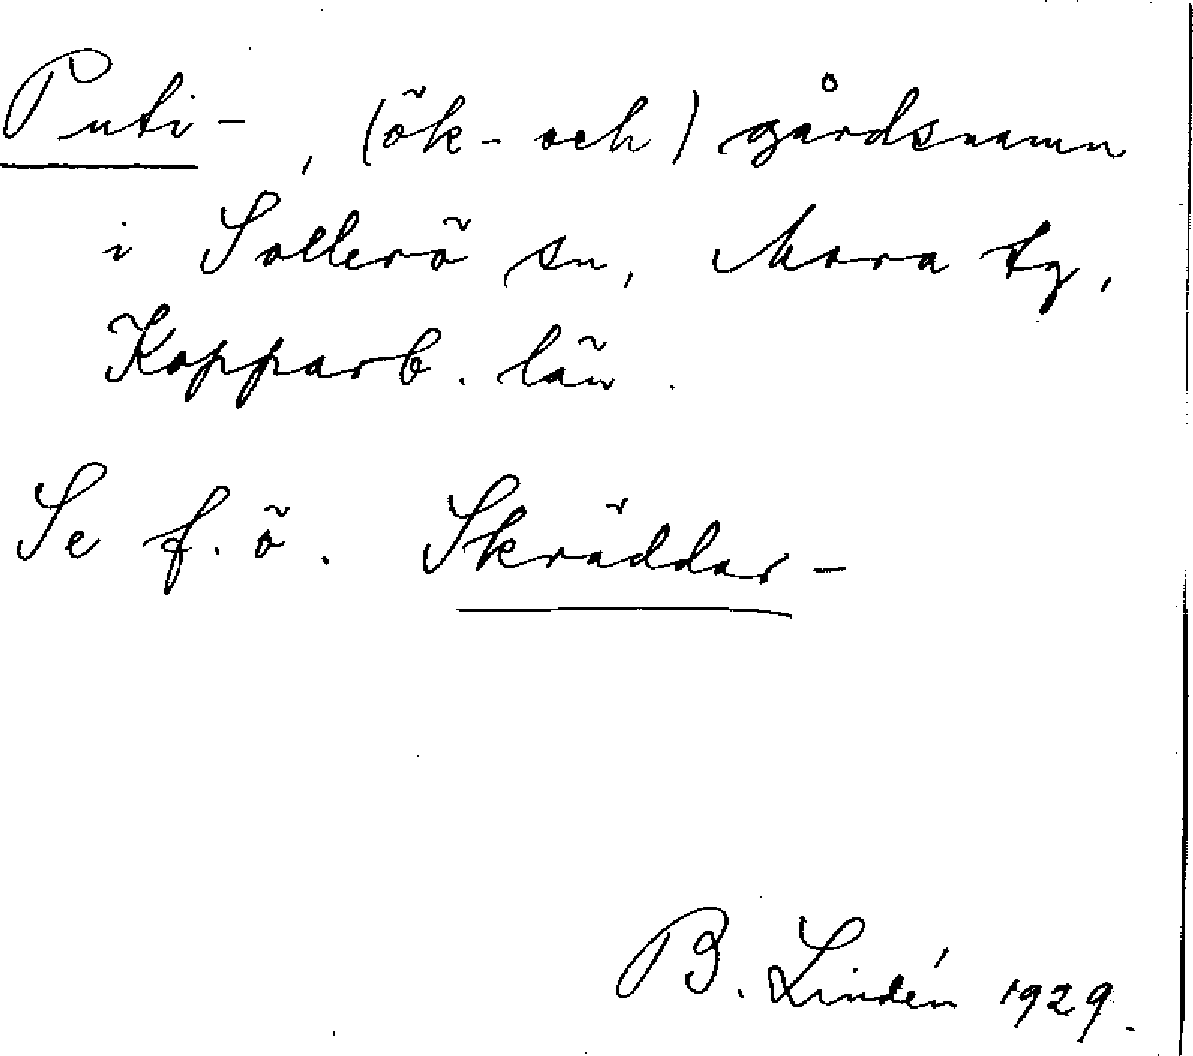 Puti-, (ök- och) gårdsnamn
i Sollerö sn, Mora tg,
Kopparb. län.
Se f. ö. Skräddar-
B. Lindén 1929.